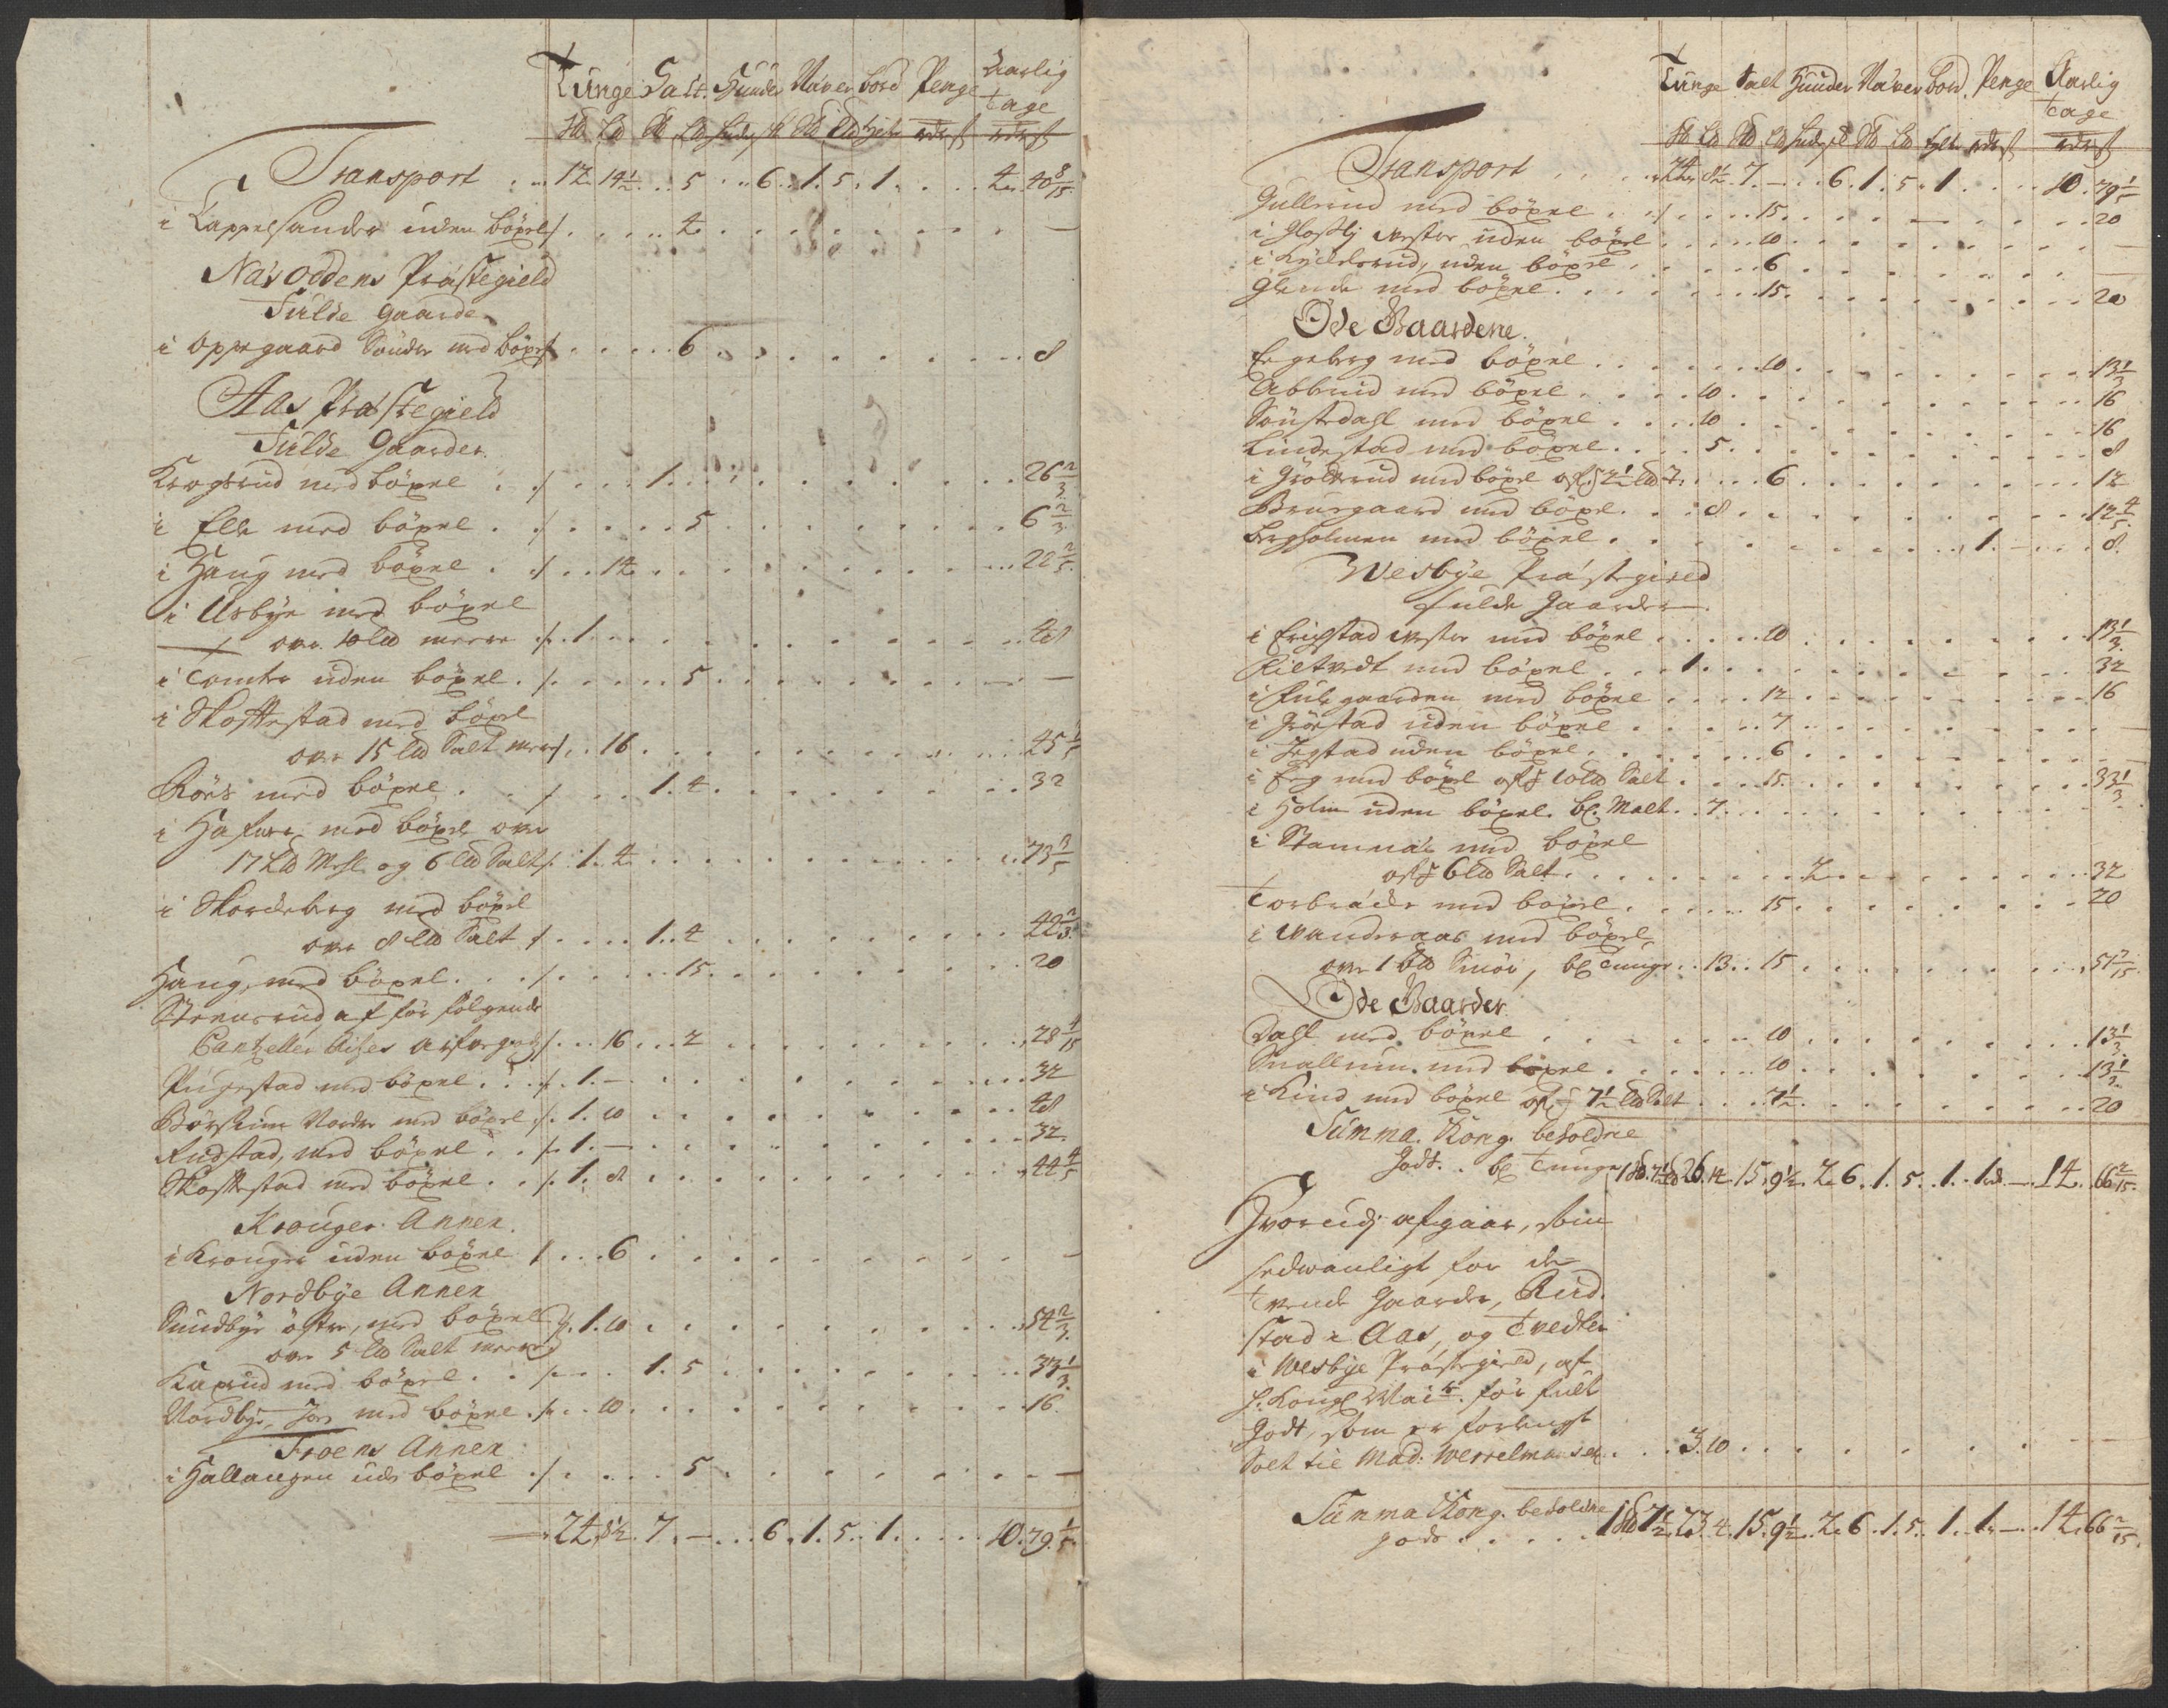 Tunge Salt. Huuder Næver bord Penge Aarlig
tage
Transport . . . 12. 14½ . . 5 . . . 6. 1. 5. 1. . . . 4. 40 8/15.
i Kappelsander uden böxel . . . . . 4 . . . . . . . . —
Næsoddens Præstegield
Fulde gaarde
i Oppegaard Sönder med böxel . . . . . 6 . . . . . . . . 8
Aas Præstegield
Fulde Gaarder.
Krogsrud med böxel . . . . 1. . . . . . . . . . 26 2/3.
i Elle med böxel . . . . . . 5 . . . . . . . . . 6 2/3
i Haug med böxel . . . 14 . . . . . . . . . . . 22 2/5.
i Usbye med böxel
over 10 Ld meere . 1. . . . . . . . . . . . . 48
i Tomter uden böxel . . . . . 5 . . . . . . . . —
i Skoftestad med böxel
over 15 Ld Salt meere . . 16 . . . . . . . . . . 45 1/5
Röes med böxel . . . . . 1. 4. . . . . . . . . . 32
i Hafuer med böxel over
17 Ld Mehl og 6 Ld Salt . 1. 4 . . . . . . . . . . . 73 3/5
i Skordeberg med böxel
over 8 Ld Salt . . . . 1. 4 . . . . . . . . . . 42 2/3.
Haug, med böxel . . . . . . 15. . . . . . . . . . 20
Steensrud af för fölgende
Cantzeller Aifes arfuegods . . . 16 . . . 2 . . . . . . . . . 28 4/15
Pugestad med böxel . . . 1. — . . . . . . . . . . . 32
Börskim Nordre med böxel . 1. 10 . . . . . . . . . . . 48
Rudstad, med böxel . . 1. — . . . . . . . . . . . 32.
Skoftestad med böxel . . 1. 8 . . . . . . . . . . . 44 4/5
Kroüger Annex.
i Kroüger uden böxel . . . 6 . . . . . . . . . . —
Nordbye Annex
Sundbye östre, med böxel . 1. 10 . . . . . . . . . . . 54 2/3.
over 5 Ld Salt meere
Kaxrud med böxel . . . . . 1. 5 . . . . . . . . . . 33 1/3.
Nordbye, Jon med böxel . . . 10 . . . . . . . . . . . 16.
Froens Annex
i Hallangen uden böxel . . . . . 5 . . . . . . . . —
24. 8½. 7. — . . . 6. 1. 5. 1. . . . . 10. 79 1/5.
Tunge Salt Huuder Næver bord. Penge Aarlig
tage
Transport . . . . 24. 8½. 7. — . . 6. 1. 5. 1. . . . . 10. 79 1/5
Gullerud med böxel . . . . . . 15. . . . . . — . . . . 20
i Glosli vester uden böxel . . . . . 10 . . . . . . . . —
i Kycklerud, uden böxel . . . . . 6 . . . . . . . . —
Glende med böxel . . . . . . 15. . . . . . . . . . 20
Öde Gaardene.
Egeberg med böxel . . . . . . 10 . . . . . . . . . 13 1/3
Abberud med böxel . . . . 10 . . . . . . . . . . . 16
Söustdahl med böxel . . . . 10 . . . . . . . . . . 16
Lindestad med böxel . . . . 5 . . . . . . . . . . . 8
i Grölerud med böxel . . . . . 6 . . . . . . . . . 12
Bruugaard med böxel . . . 8 . . . . . . . . . . . 12 4/5.
Bergholmen med böxel . . . . . . . . . . . . 1. — . . . 8.
Wesbye Præstegield
fulde Gaarder
i Erichstad vester med böxel . . . . . 10 . . . . . . . . 13 1/3.
Kieltvedt med böxel . . . 1. . . . . . . . . . . . 32
i fuhrgaarden med böxel . . . . 12 . . . . . . . . . 16
i Gröstad uden böxel . . . . . 7 . . . . . . . . —
i Jegstad uden böxel . . . . . 6 . . . . . . . . —
i Eeg med böxel 10 Ld Salt . . . . 15. . . . . . . . . . 33 1/3.
i Holm uden böxel. bl. Malt . . 7. . . . . . . . . .
i Stamnæs med böxel
6 Ld Salt . . . . . . . . . 2 . . . . . . . . 32
Torbræde med böxel . . . . . . 15 . . . . . . . . . 20
i Wanderaas med böxel,
over 1 Ld Smör, bl. Tunge . . 13. . 15 . . . . . . . . . 51 7/15.
Öde Gaarder
Dahl med böxel . . . . . . 10 . . . . . . . . . 13 1/3.
Snallerum med böxel . . . . . . 10 . . . . . . . . . 13 1/3.
i Kind med böxel 7½ Ld Salt . . . . 7½ . . . . . . . . . 20
Summa. Kong. beholdne
Godt. . bl. Tunge 1 Sk. 7½ Ld 26. 14. 15. 9½. 2. 6. 1. 5. . 1. . 1. — . 14. 66 2/15.
Hvorudj afgaar, som
sedvanligt for de
tvende Gaarder, Rud-
stad i Aas, og Tvedter
i Wesbye Præstegield, af
H. Kongl Maits. för fult
Godt, som er forhen
Solt til Mad. Werrelmansen . . . 3. 10 . . . . . . . —
Summa Kong. beholdne
gods . . . . 1 Sk 7½ 23. 4. 15. 9½. 2. 6. 1. 5. . 1. . 1. — . 14. 66 2/15.